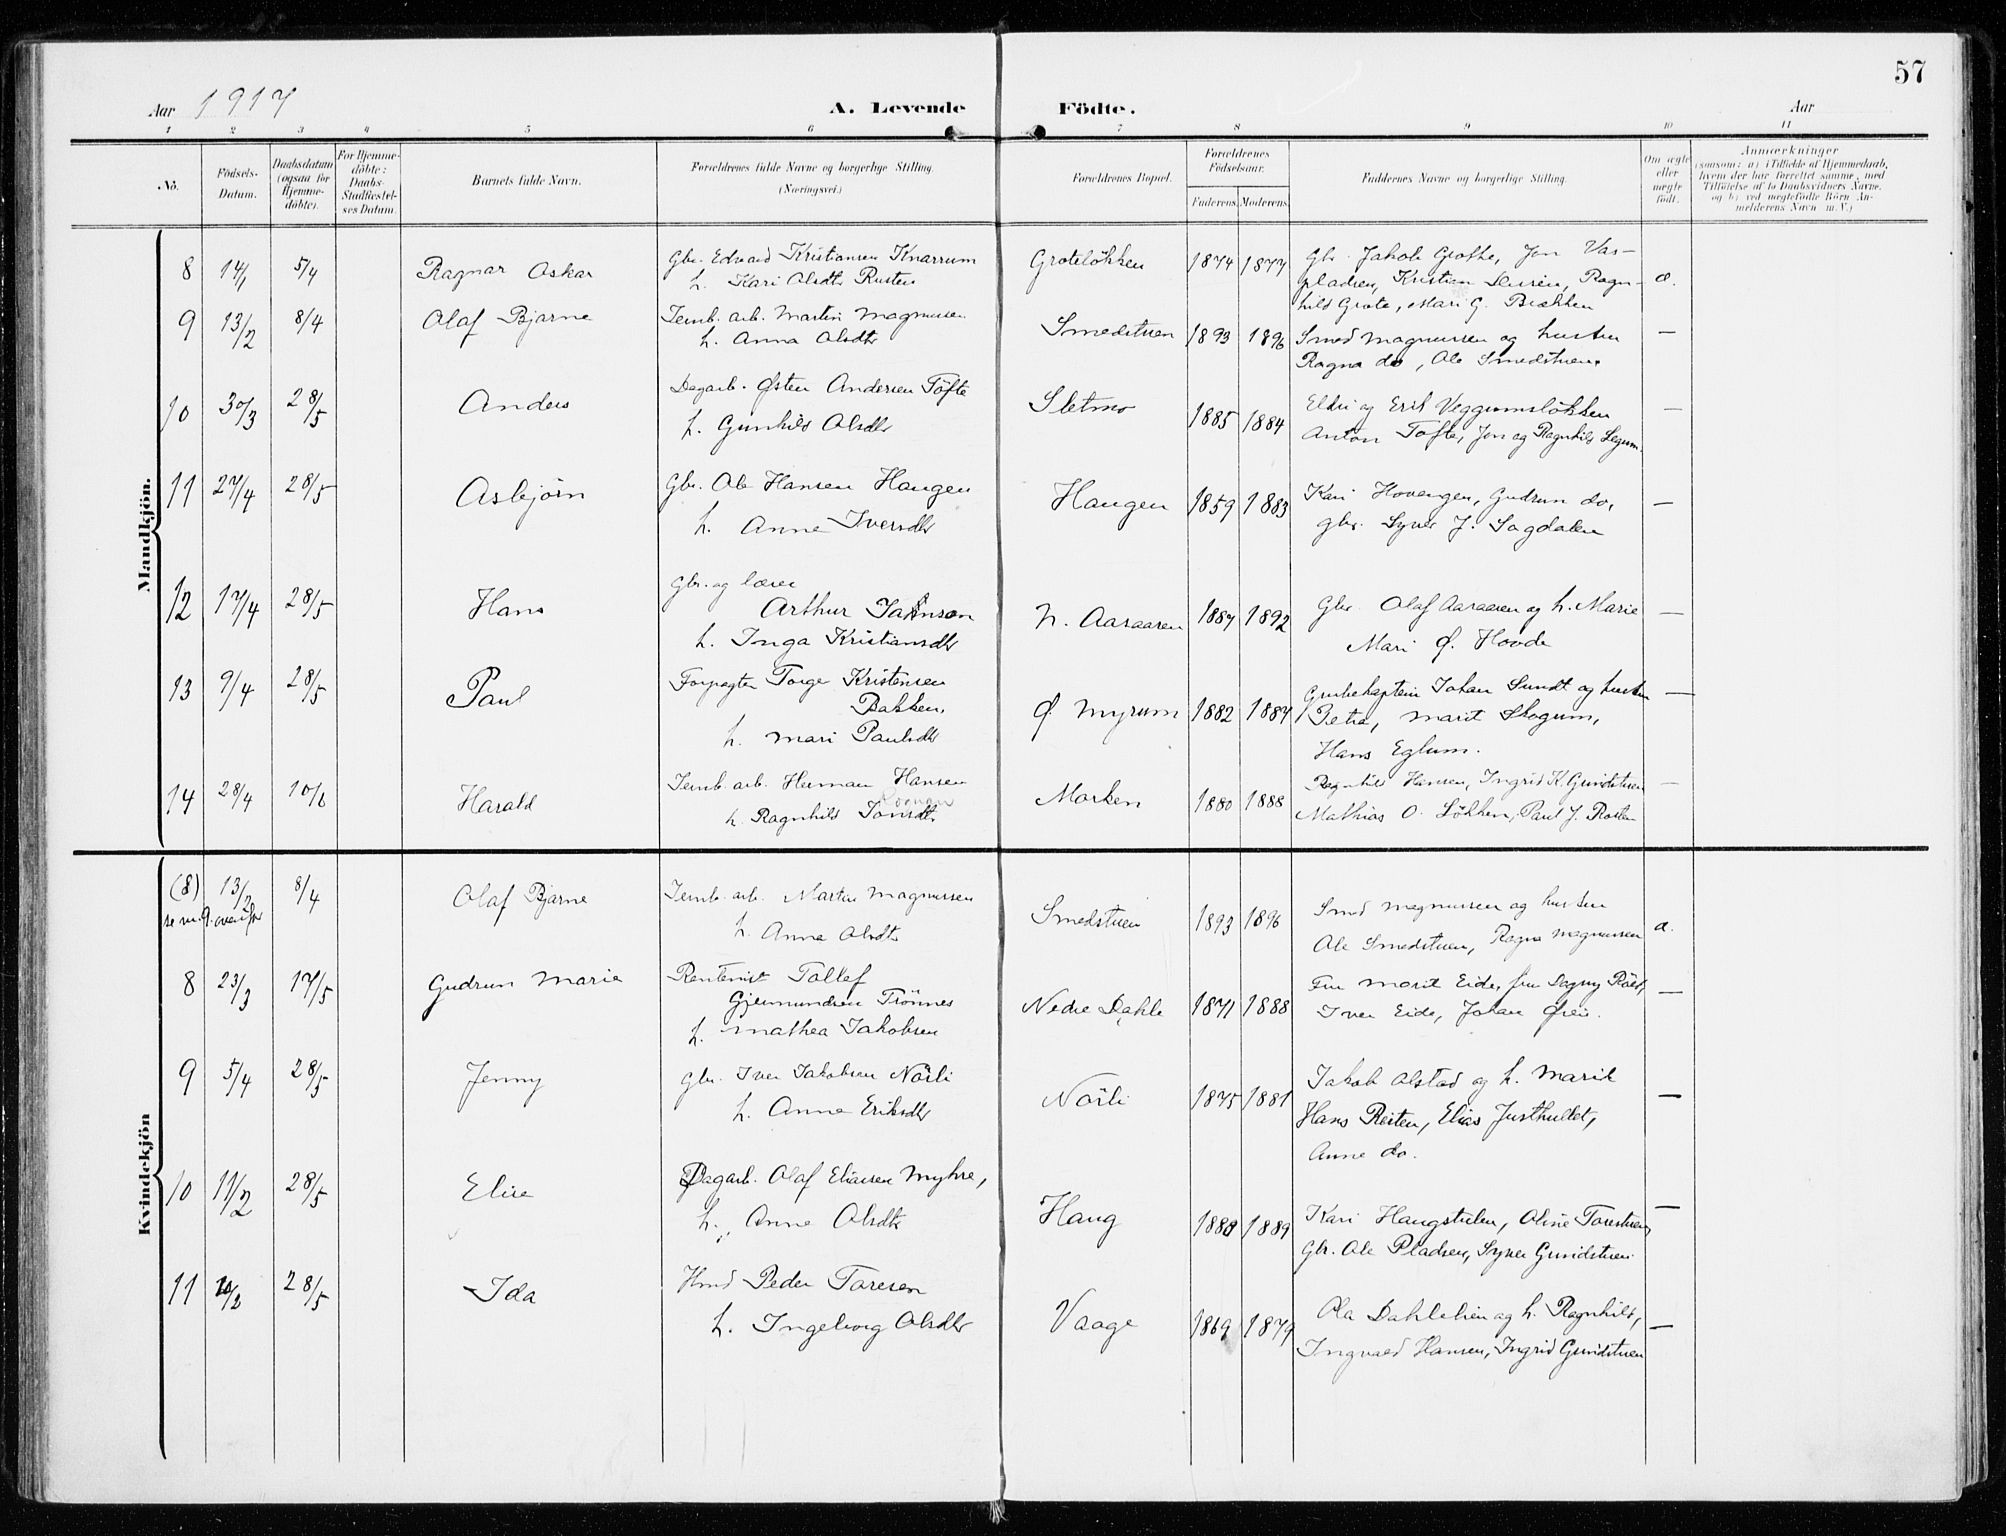 57
Aar 1917 A. Levende Födte. Aar
1 2 3 4 5 6 7 8 9 10 11
No.
Födsels-Datum.
Daabsdatum (ogsaa for Hjemme-döbte).
For Hjemme-döbte: Daabs-Stadfæstel-ses Datum.
Barnets fulde Navn.
Forældrenes fulde Navne og borgerlige Stilling.
(Næringsvei.)
Forældrenes Bopæl.
Forældrenes Födselsaar.
Faderens. Moderens.
Faddernes Navne og borgerlige Stilling.
Om ægte eller uægte födt.
Anmærkninger
(saasom: a) i Tilfælde af Hjemmedaab,
hvem der har forrettet samme, med
Tilföielse af to Daabsvidners Navne,
og b) ved uægtefödte Börn An-
melderens Navn m.V.)
Mandkjön.
8 14/1 5/4 Ragnar Oskar Gbr. Edvard Kristiansen Knarrum Groteløkken 1874 1877 Gbr. Jakob Grothe, Jon Vas-
h. Kari Olsdtr Rusten pladsen, Kristian, Ragn- æ.
hild Grote, Mari G. Brækken
9 13/2 8/4 Olaf Bjarne Jernb. arb. Martin Magnussen Smedstuen 1893 1896 Smed Magnussen og hustru —
h. Anna Olsdtr Ragna do, Ole Smedstuen.
10 30/3 28/5 Anders Dagarb. Østen Andersen Tøfte Sletmo 1885 1884 Eldri og Erik Veggumsløkken —
h. Gunhild Olsdtr Anton Tofte, Jon og Ragnhild Segum.
11 27/4 28/5 Asbjørn Gbr. Ole Hansen Haugen Haugen 1859 1883 Kari Hovengen, Gudrun do, —
h. Anne Iversdtr gbr. Syver J. Sagdalen
12 17/4 28/5 Hans Gbr. og lærer
Arthur Jahnson N. Aaraaren 1887 1892 Gbr. Olaf Aaraaren og h. Marie —
h. Inga Kristiansdtr Mari Ø. Hovde
13 9/4 28/5 Paul Forpagter Torge Kristensen Ø. Myrum 1882 1887 Grubekaptein Johan Sundt og hustru —
Bakken, Petra, Marit Skogum,
h. Mari Paulsdtr Hans Eglum.
14 28/4 10/6 Harald Jernb. arb. Herman Hansen Morken 1880 1888 Ragnhild Hansen, Ingrid K. Gunidstuen —
h. Ragnhild Jonsdtr. Mathias O. Løkken, Paul J. Rosten
Kvindekjön
(8) 13/2 8/4 Olaf Bjarne Jernb. arb. Martin Magnussen Smedstuen 1893 1896 Smed Magnussen og hustru
se nr. 9. ovenfor h. Anna Olsdtr Ole Smedstuen, Ragna Magnussen æ.
8 23/3 17/5 Gudrun Marie Rentenist Tollef Nedre Dahle 1871 1888 Fru Marit Eide, fru Dagny Röed, —
Gjermundsen Trönnes Iver Eide, Johan Öien.
h. Mathea Jakobsen
9 5/4 28/5 Jenny Gbr. Iver Jakobsen Nörli Nörli 1875 1881 Jakob Olstad og h. Marit —
h. Anne Eriksdtr Hans Reiten, Elias Justhullet,
Anne do.
10 11/2 28/5 Elise Dagarb. Olaf Eliasen Myhre, Haug 1888 1889 Kari Haugstulen, Oline Torestuen, —
h. Anne Olsdtr Gbr. Ole Pladsen, Syver Gunidstuen.
11 10/2 28/5 Ida Hmd Peder Toresen Vaage 1869 1879 Ola Dahlelien og h. Ragnhild, —
h. Ingeborg Olsdtr Ingvald Hansen, Ingrid Gunidstuen